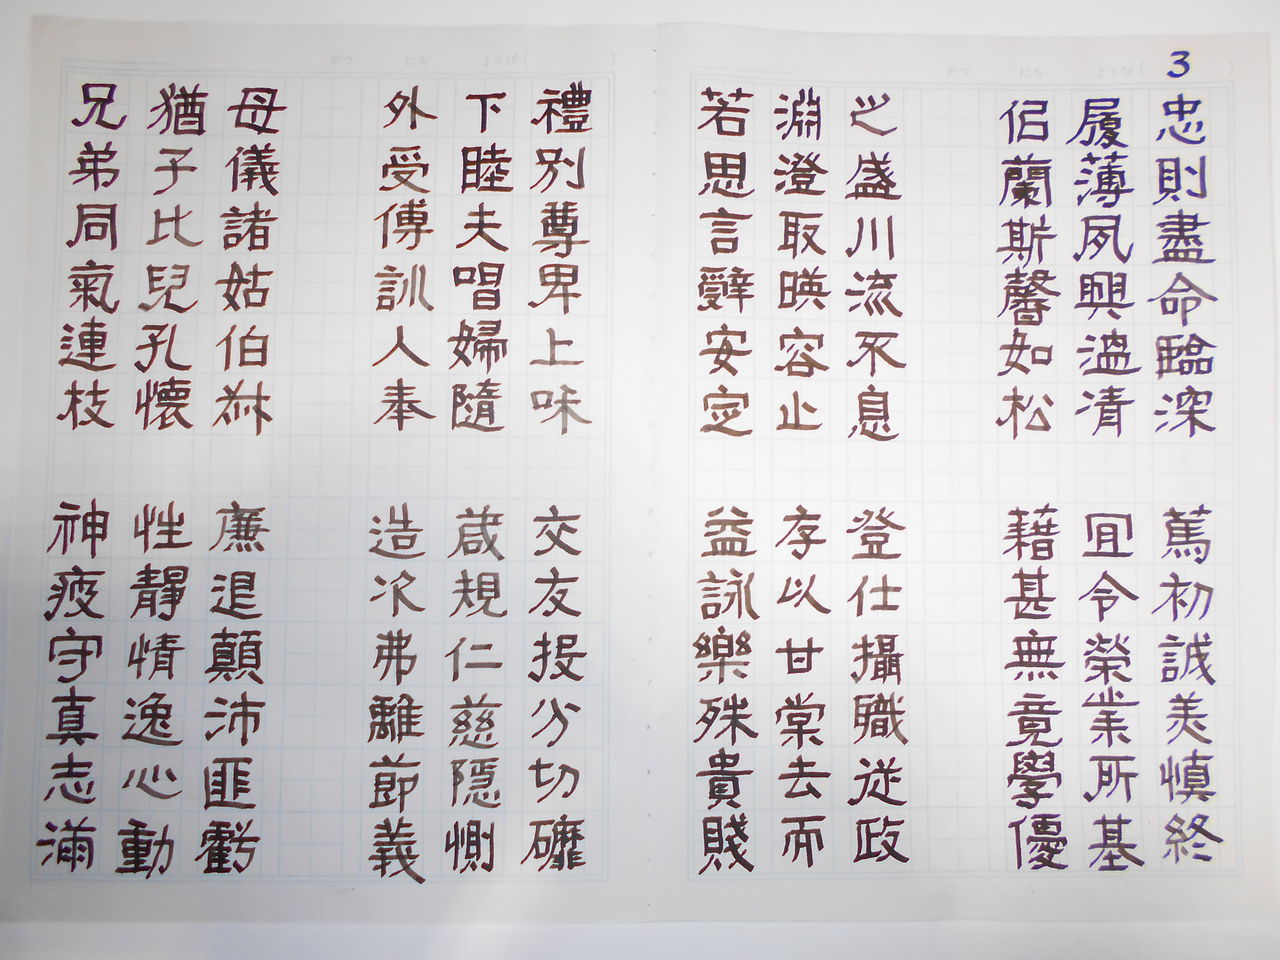 がつ にち ようび( )
3
忠則盡命臨深
履薄夙興溫凊
佀蘭斯馨如松
之盛川流不息
淵澄取暎容止
若思言辭安定
篤初誠美慎終
宜令榮業所基
藉甚無竟學優
登仕攝職從政
存以甘棠去而
益詠樂殊貴賤
がつ にち ようび( )
禮別尊卑上咊
下睦夫唱婦隨
外受傅訓人奉
母儀諸姑伯叔
猶子比兒孔懷
兄弟同氣連枝
交友投分切磨
箴規仁慈隱惻
造次弗離節義
廉退顛沛匪虧
性靜情逸心動
神疲守真志滿